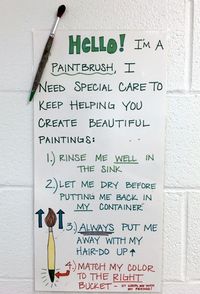 HELLO! I'M A
PAINTBRUSH, I
NEED SPECIAL CARE TO
KEEP HELPING YOU
CREATE BEAUTIFUL
PAINTINGS:
1.) RINSE ME WELL IN
THE SINK
2.) LET ME DRY BEFORE
PUTTING ME BACK IN
MY CONTAINER
3.) ALWAYS PUT ME
AWAY WITH MY
HAIR-DO UP ↑
4.) MATCH MY COLOR
TO THE RIGHT
BUCKET -